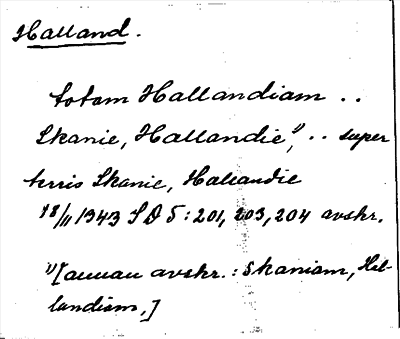 Halland.
totam Hallandiam ..
Skanie, Hallandie,¹⁾ .. super
terris Skanie, Hallandie
18/11 1343 SD 5: 201, 203, 204 avskr.
¹⁾[annan avskr.: Skaniam, Hal-
landiam,]